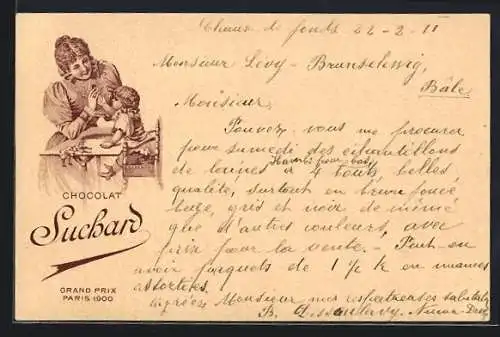 Chaux de fonds 22-2-11
Monsieur Lévy-Brunschwig,
Bâle
Monsieur,
Pouvez-vous me procurer
pour samedi des échantillons
de laines à 4 bouts, belles
qualité, surtout en brun foncé
beige, gris et noir de même
que d'autres couleurs, avec
prix pour la vente. - Peut-on
avoir par de 1/2 k en nuances
assorties.
Agréez Monsieur mes respectueuses
B.
CHOCOLAT
Suchard
GRAND PRIX
PARIS 1900